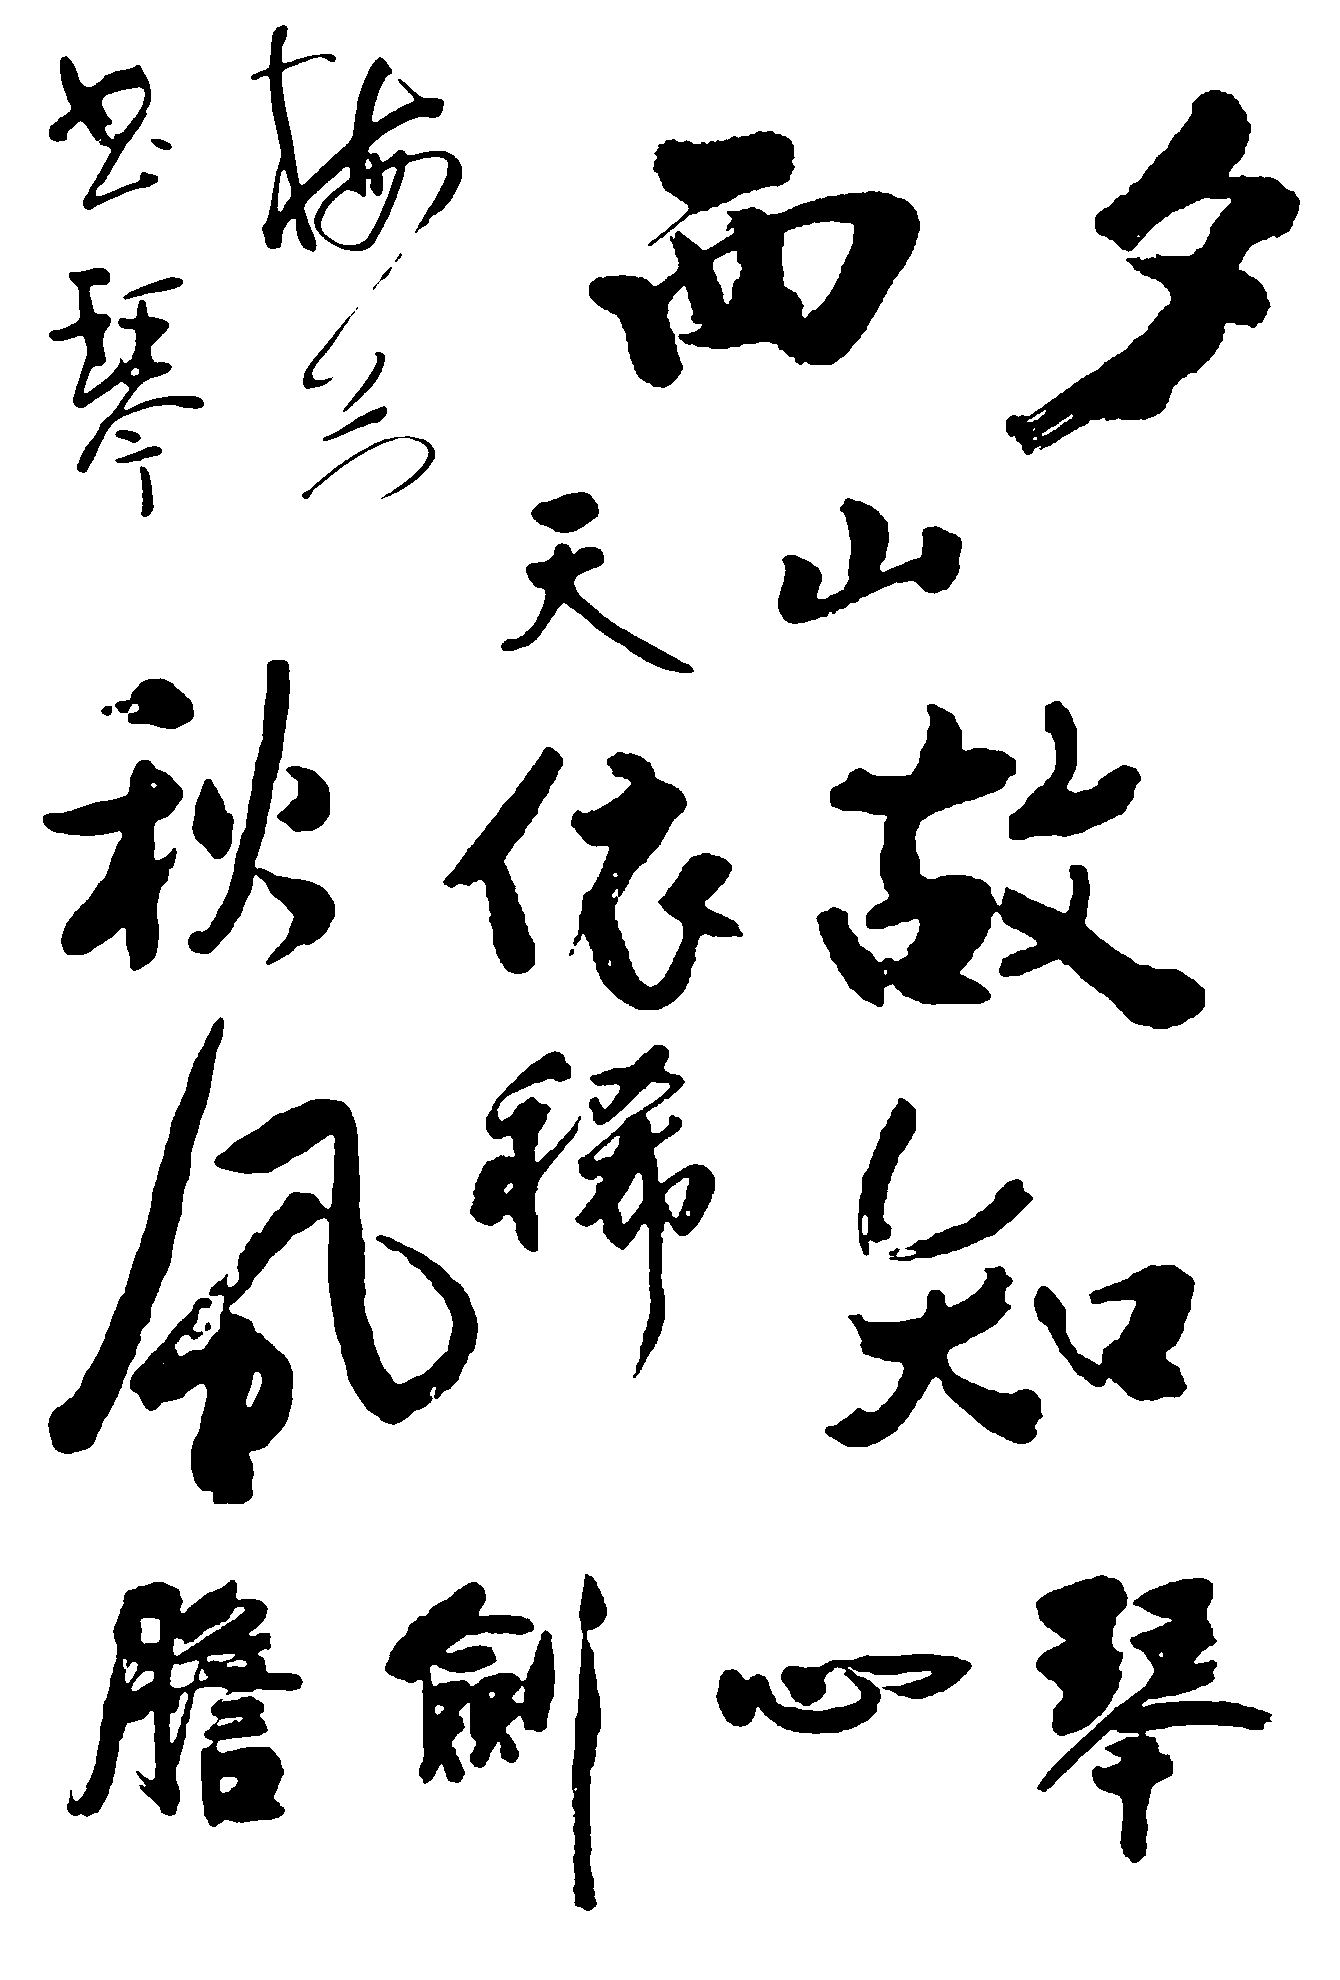 夕西
山天
故知
依稀
秋風
梅
書琴
琴心劍膽